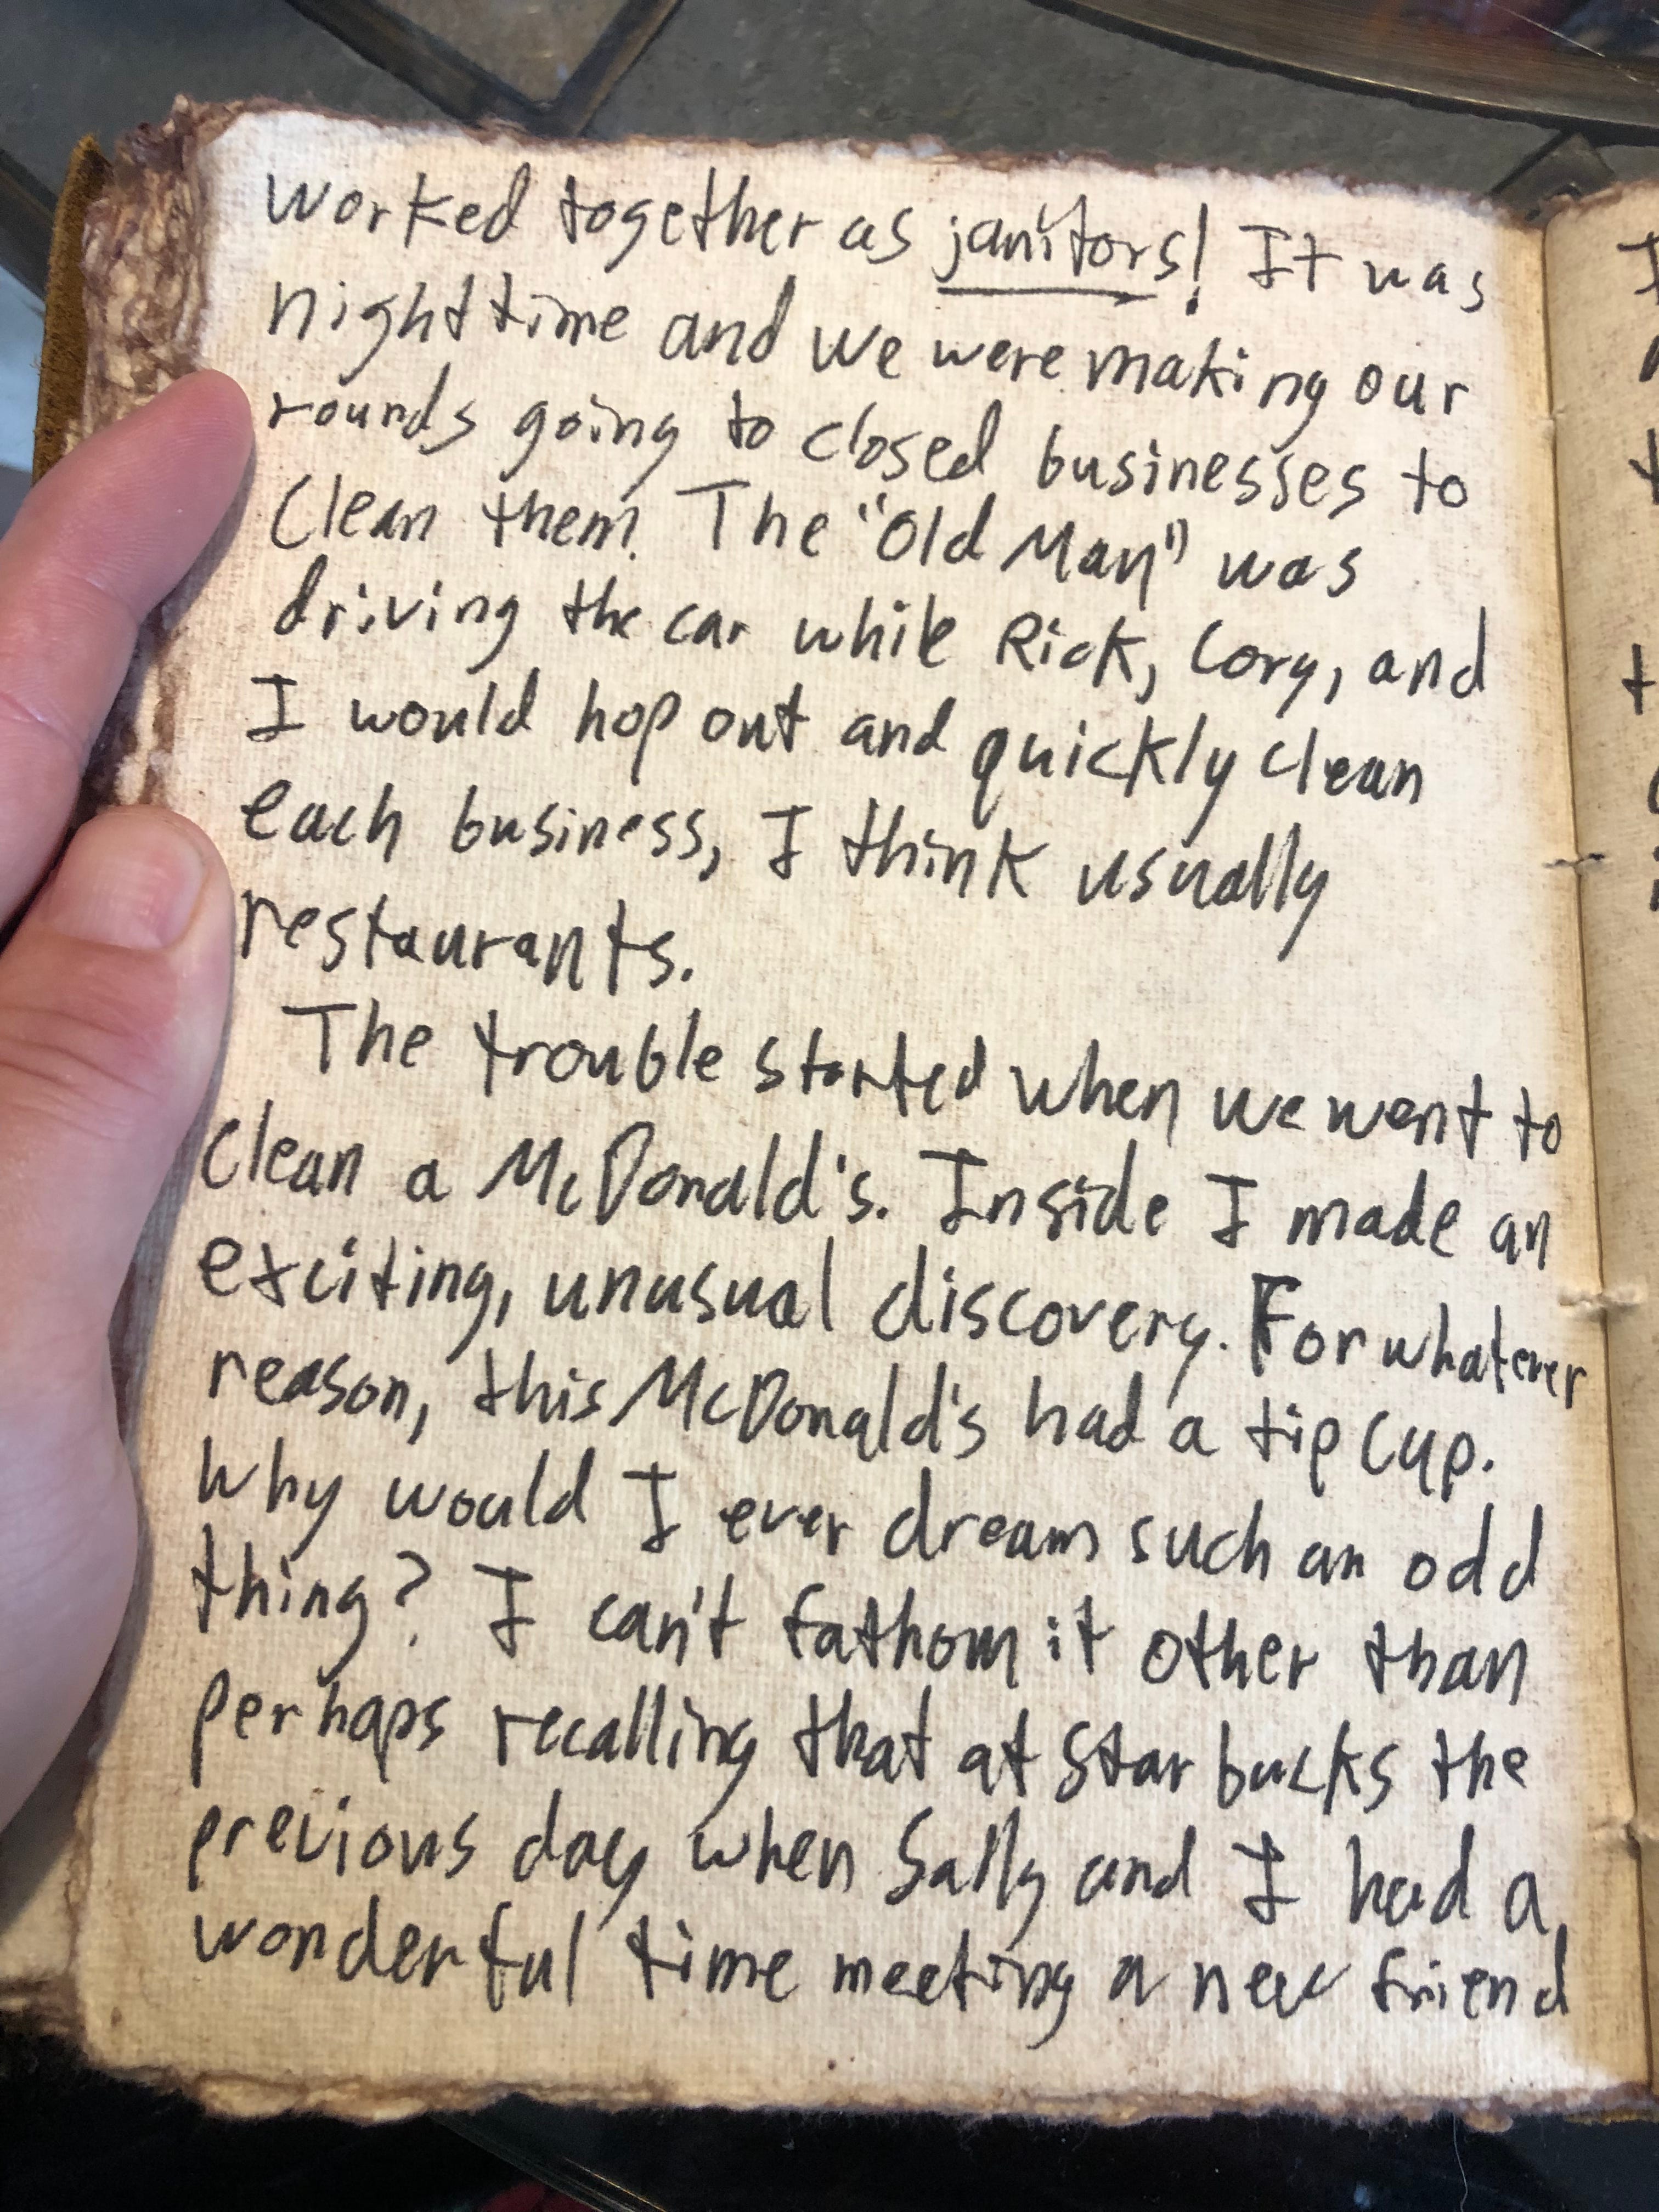 worked together as janitors! It was
nighttime and we were making our
rounds going to closed businesses to
clean them. The "Old Man" was
driving the car while Rick, Cory, and
I would hop out and quickly clean
each business, I think usually
restaurants.
The trouble started when we went to
clean a McDonald's. Inside I made an
exciting, unusual discovery. For whatever
reason, this McDonald's had a tip cup.
Why would I ever dream such an odd
thing? I can't fathom it other than
perhaps recalling that at Starbucks the
previous day when Sally and I had a
wonderful time meeting a new friend